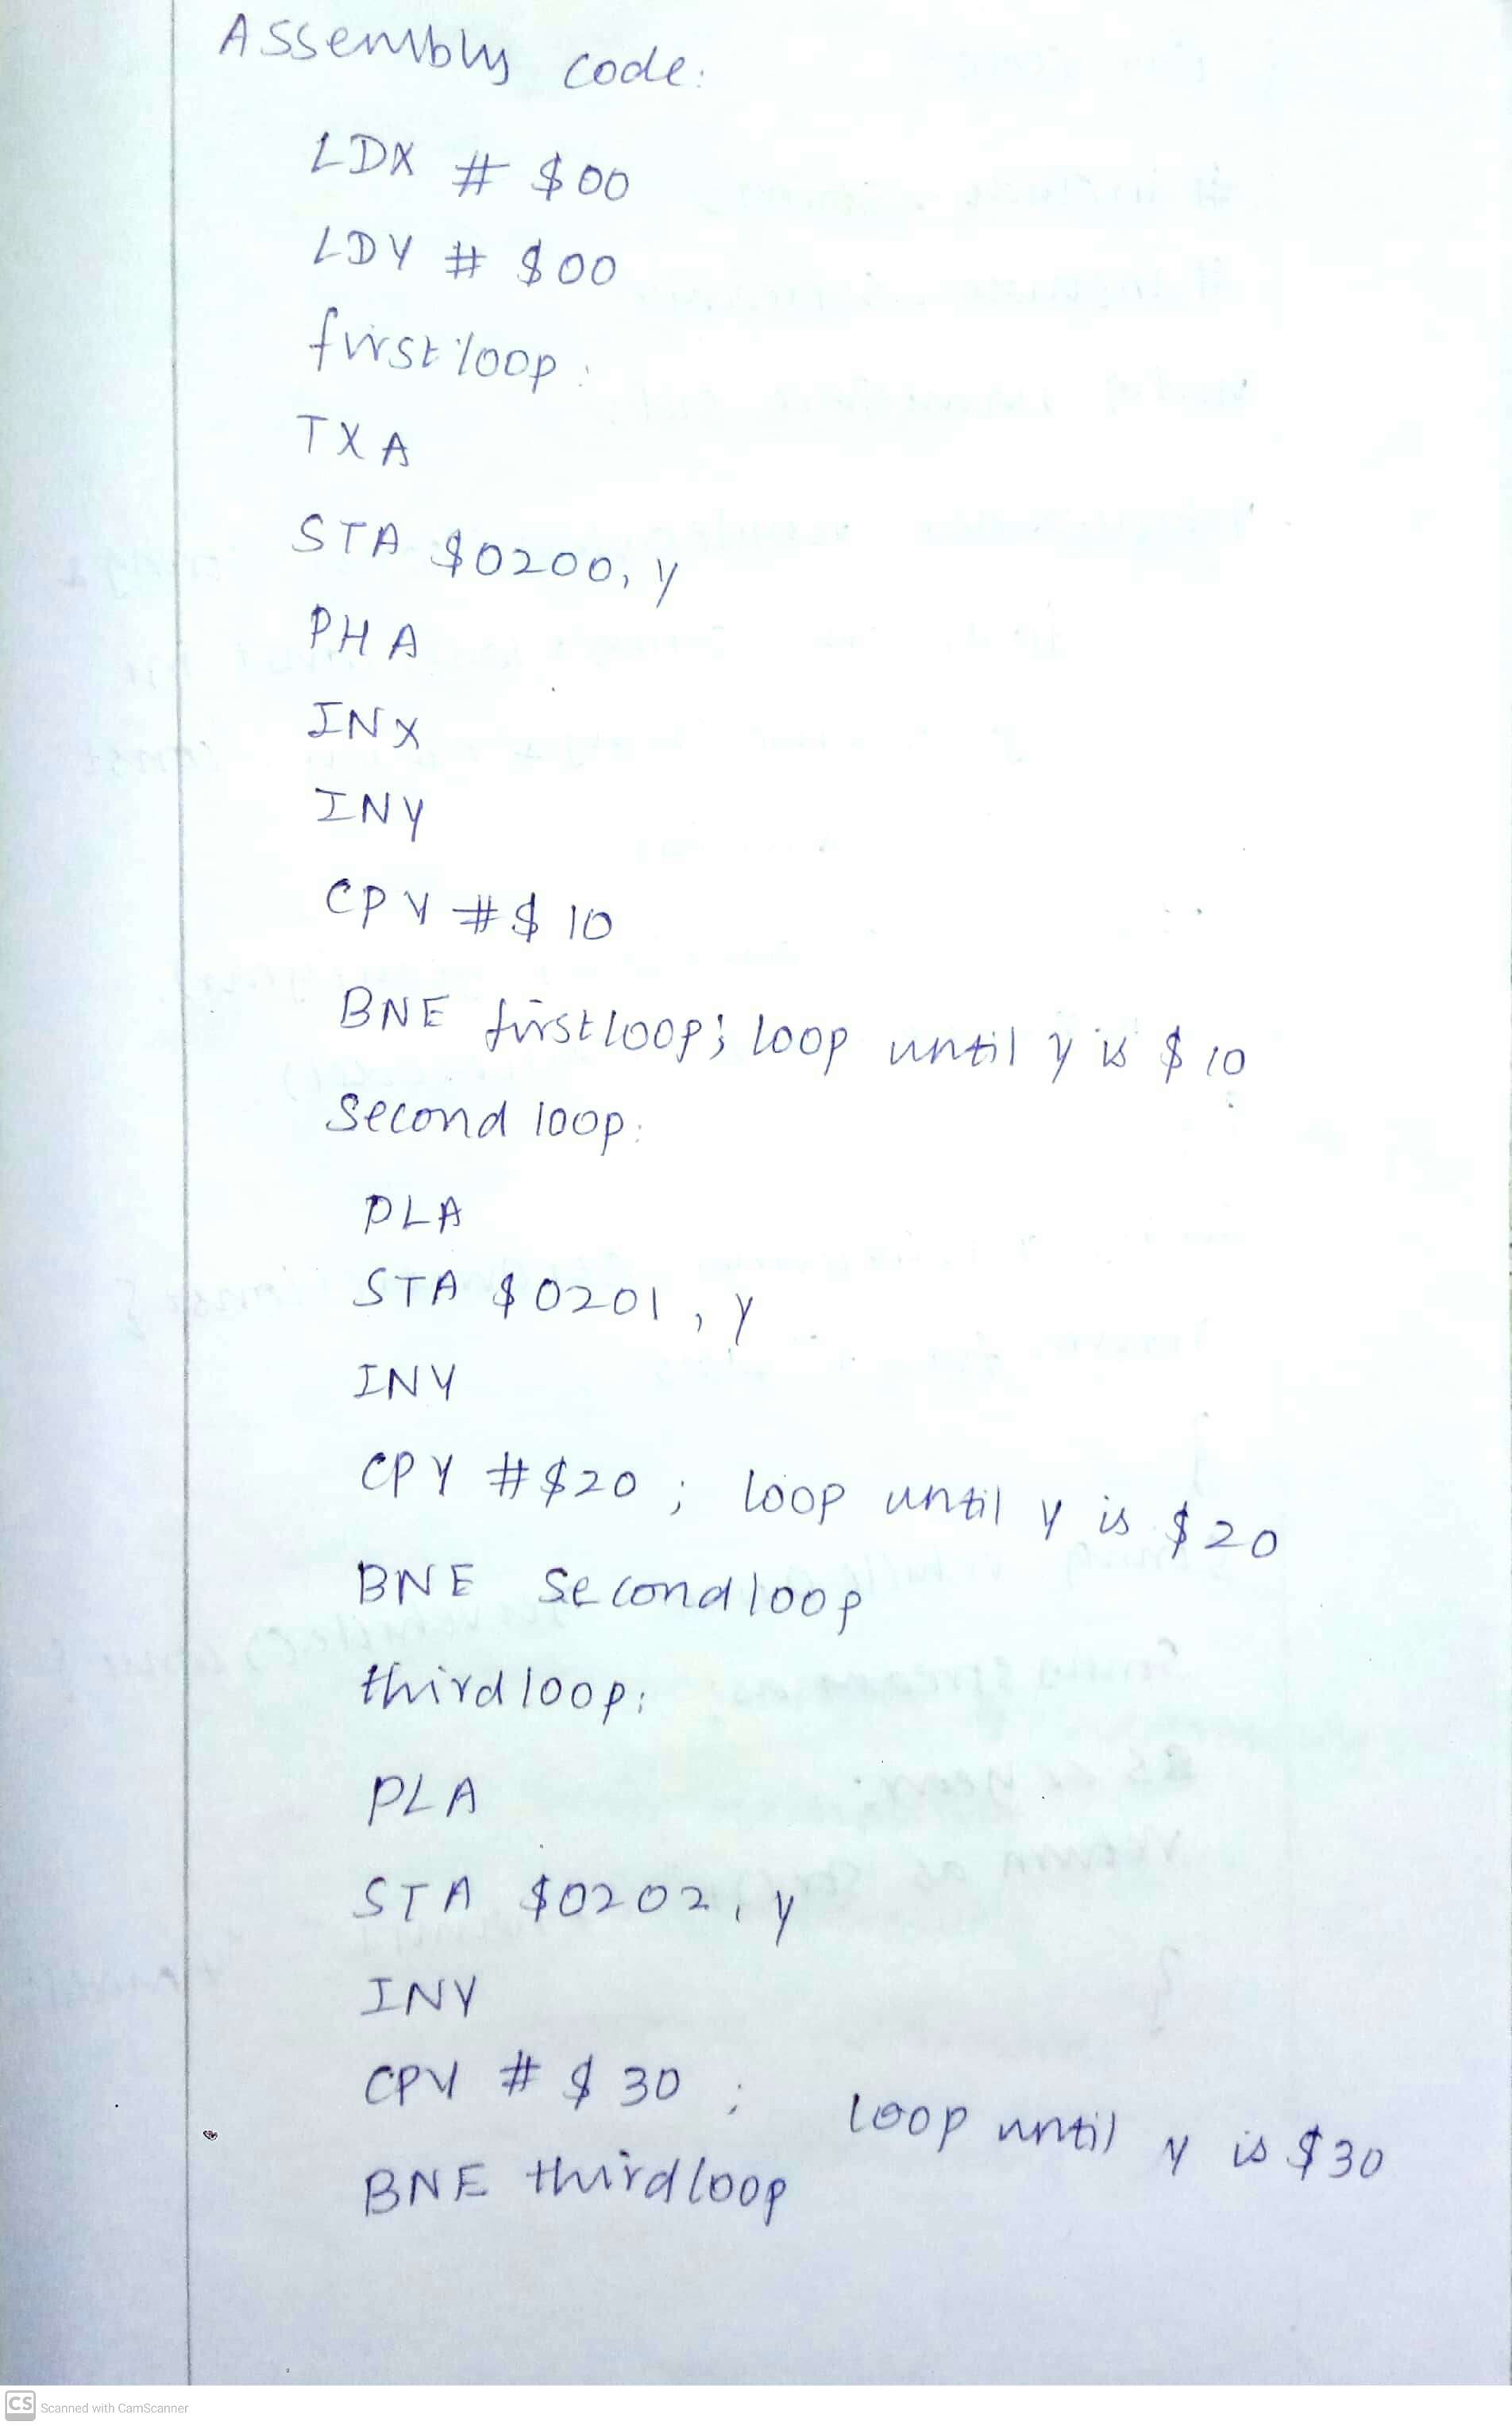 Assembly code:
LDX # $00
LDY # $00
firstloop:
TXA
STA $0200, y
PHA
INX
INY
CPY #$ 10
BNE firstloop; loop until y is $ 10
Second loop:
PLA
STA $0201, y
INY
CPY #$20 ; loop until y is $20
BNE secondloop
thirdloop:
PLA
STA $0202, y
INY
CPY # $ 30 ; loop until y is $30
BNE thirdloop
CS Scanned with CamScanner